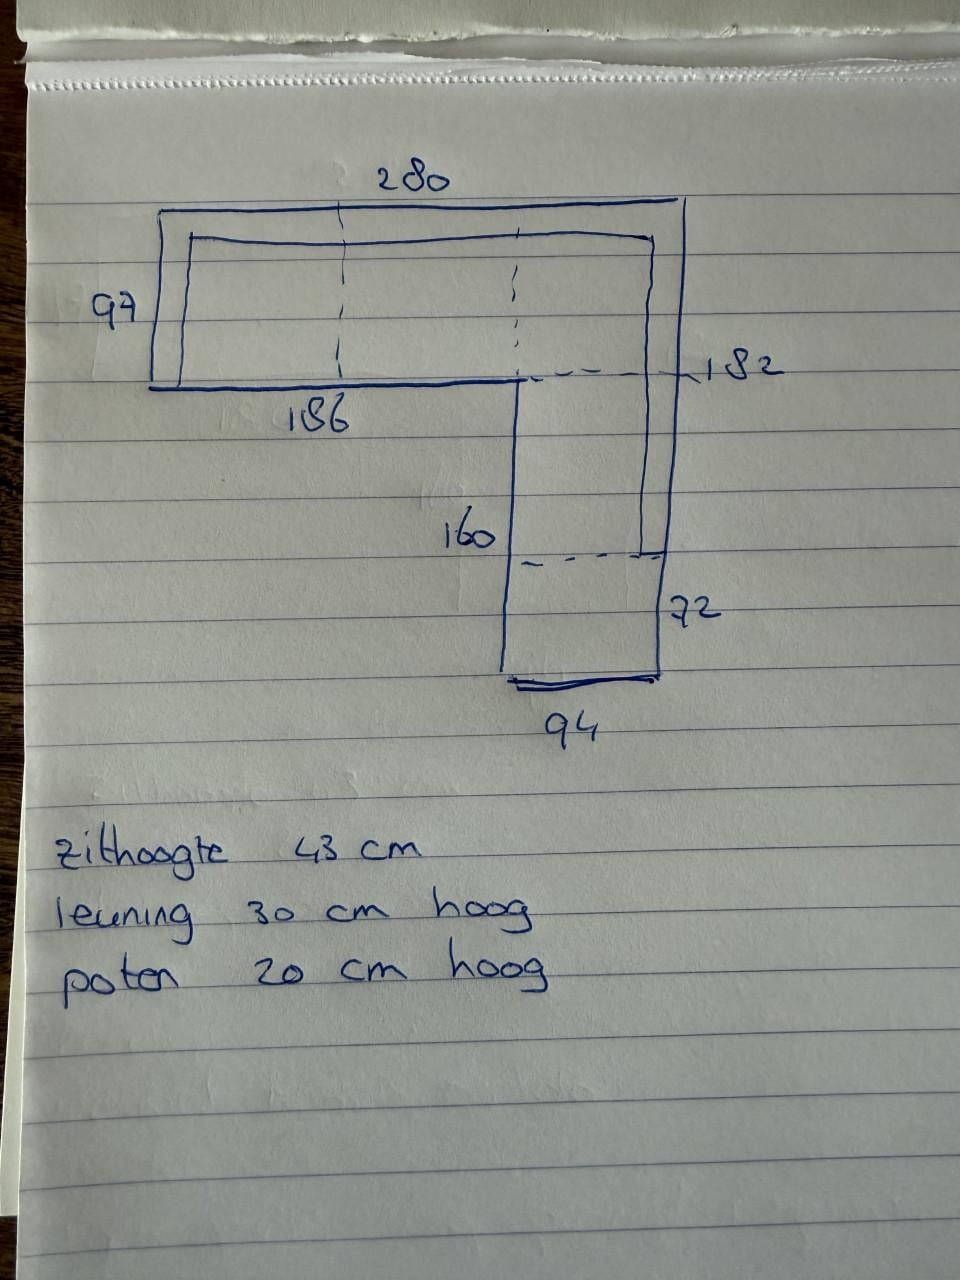 280
97
182
186
160
72
94
zithoogte 43 cm
leuning 30 cm hoog
poten 20 cm hoog